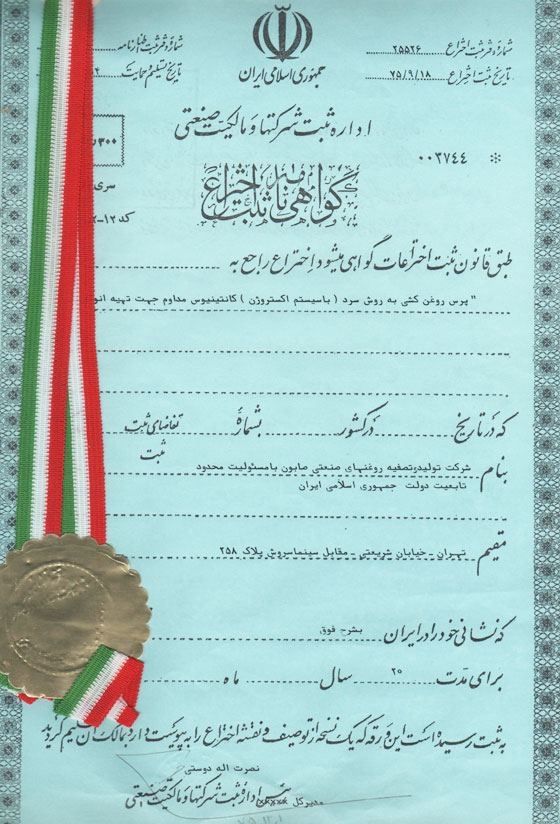 شماره دفتر ثبت اختراع ۲۵۵۲۶
شماره دفتر ثبت اظهارنامه
جمهوری اسلامی ایران
تاریخ ثبت اختراع ۲۵/۹/۱۸
تاریخ تسلیم و حمایت
اداره ثبت شرکتها و مالکیت صنعتی
۰۰۳۷۴۴ *
۳۰۰
سری
گواهی نامه ثبت اختراع
کد ۱۲-
طبق قانون ثبت اختراعات گواهی میشود اختراع راجع به
" پرس روغن کشی به روش سرد ( باسیستم اکستروژن ) کانتینیوس مداوم جهت تهیه
که در تاریخ در کشور بشمارهٔ تقاضای ثبت
ثبت
بنام شرکت تولیدوتصفیه روغنهای صنعتی صابون بامسئولیت محدود
تابعیت دولت جمهوری اسلامی ایران
مقیم تهران - خیابان شریعتی - مقابل سینماسروش پلاک ۲۵۸
که نشانی خود را در ایران بشرح فوق
برای مدت ۲۰ سال ماه
به ثبت رسیده است این ورقه که یک نسخه از توصیف و نقشه اختراع را به پیوست دارد بمالک آن تسلیم گردید
نصرت اله دوستی
اداره ثبت شرکتها و مالکیت صنعتی
مدیرکل